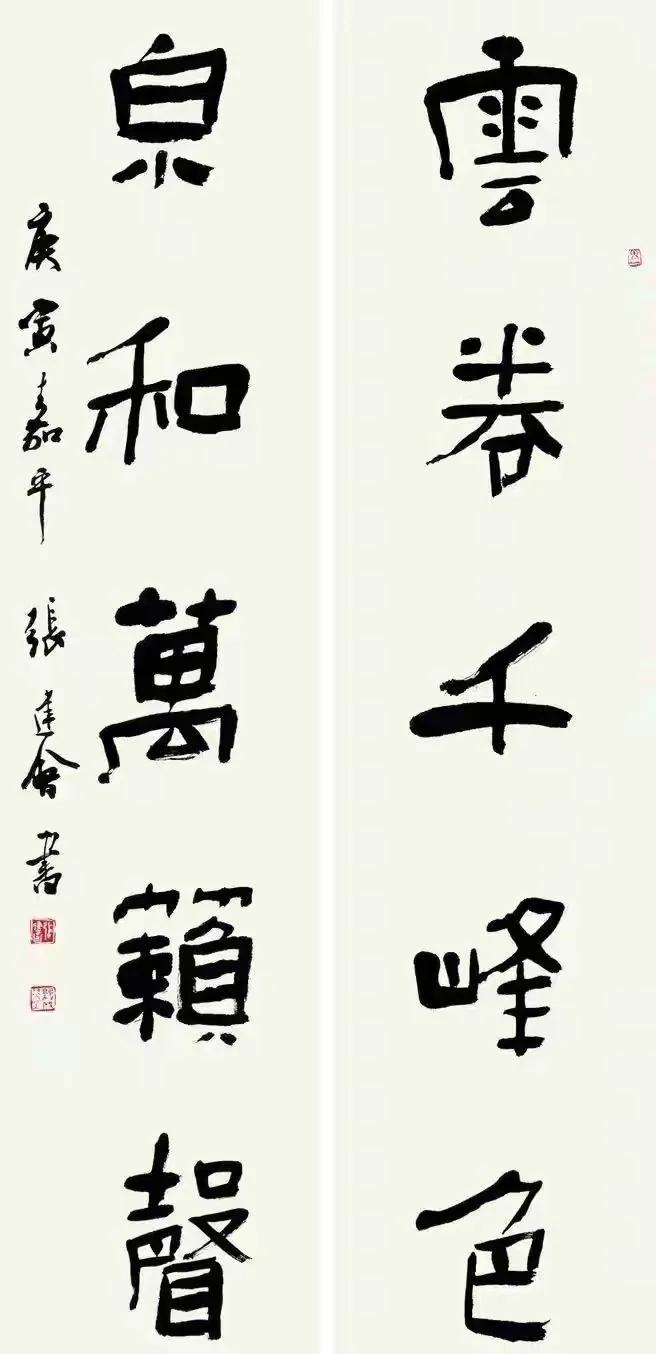 雲卷千峰色
泉和萬籟聲
庚寅嘉平 張建會書